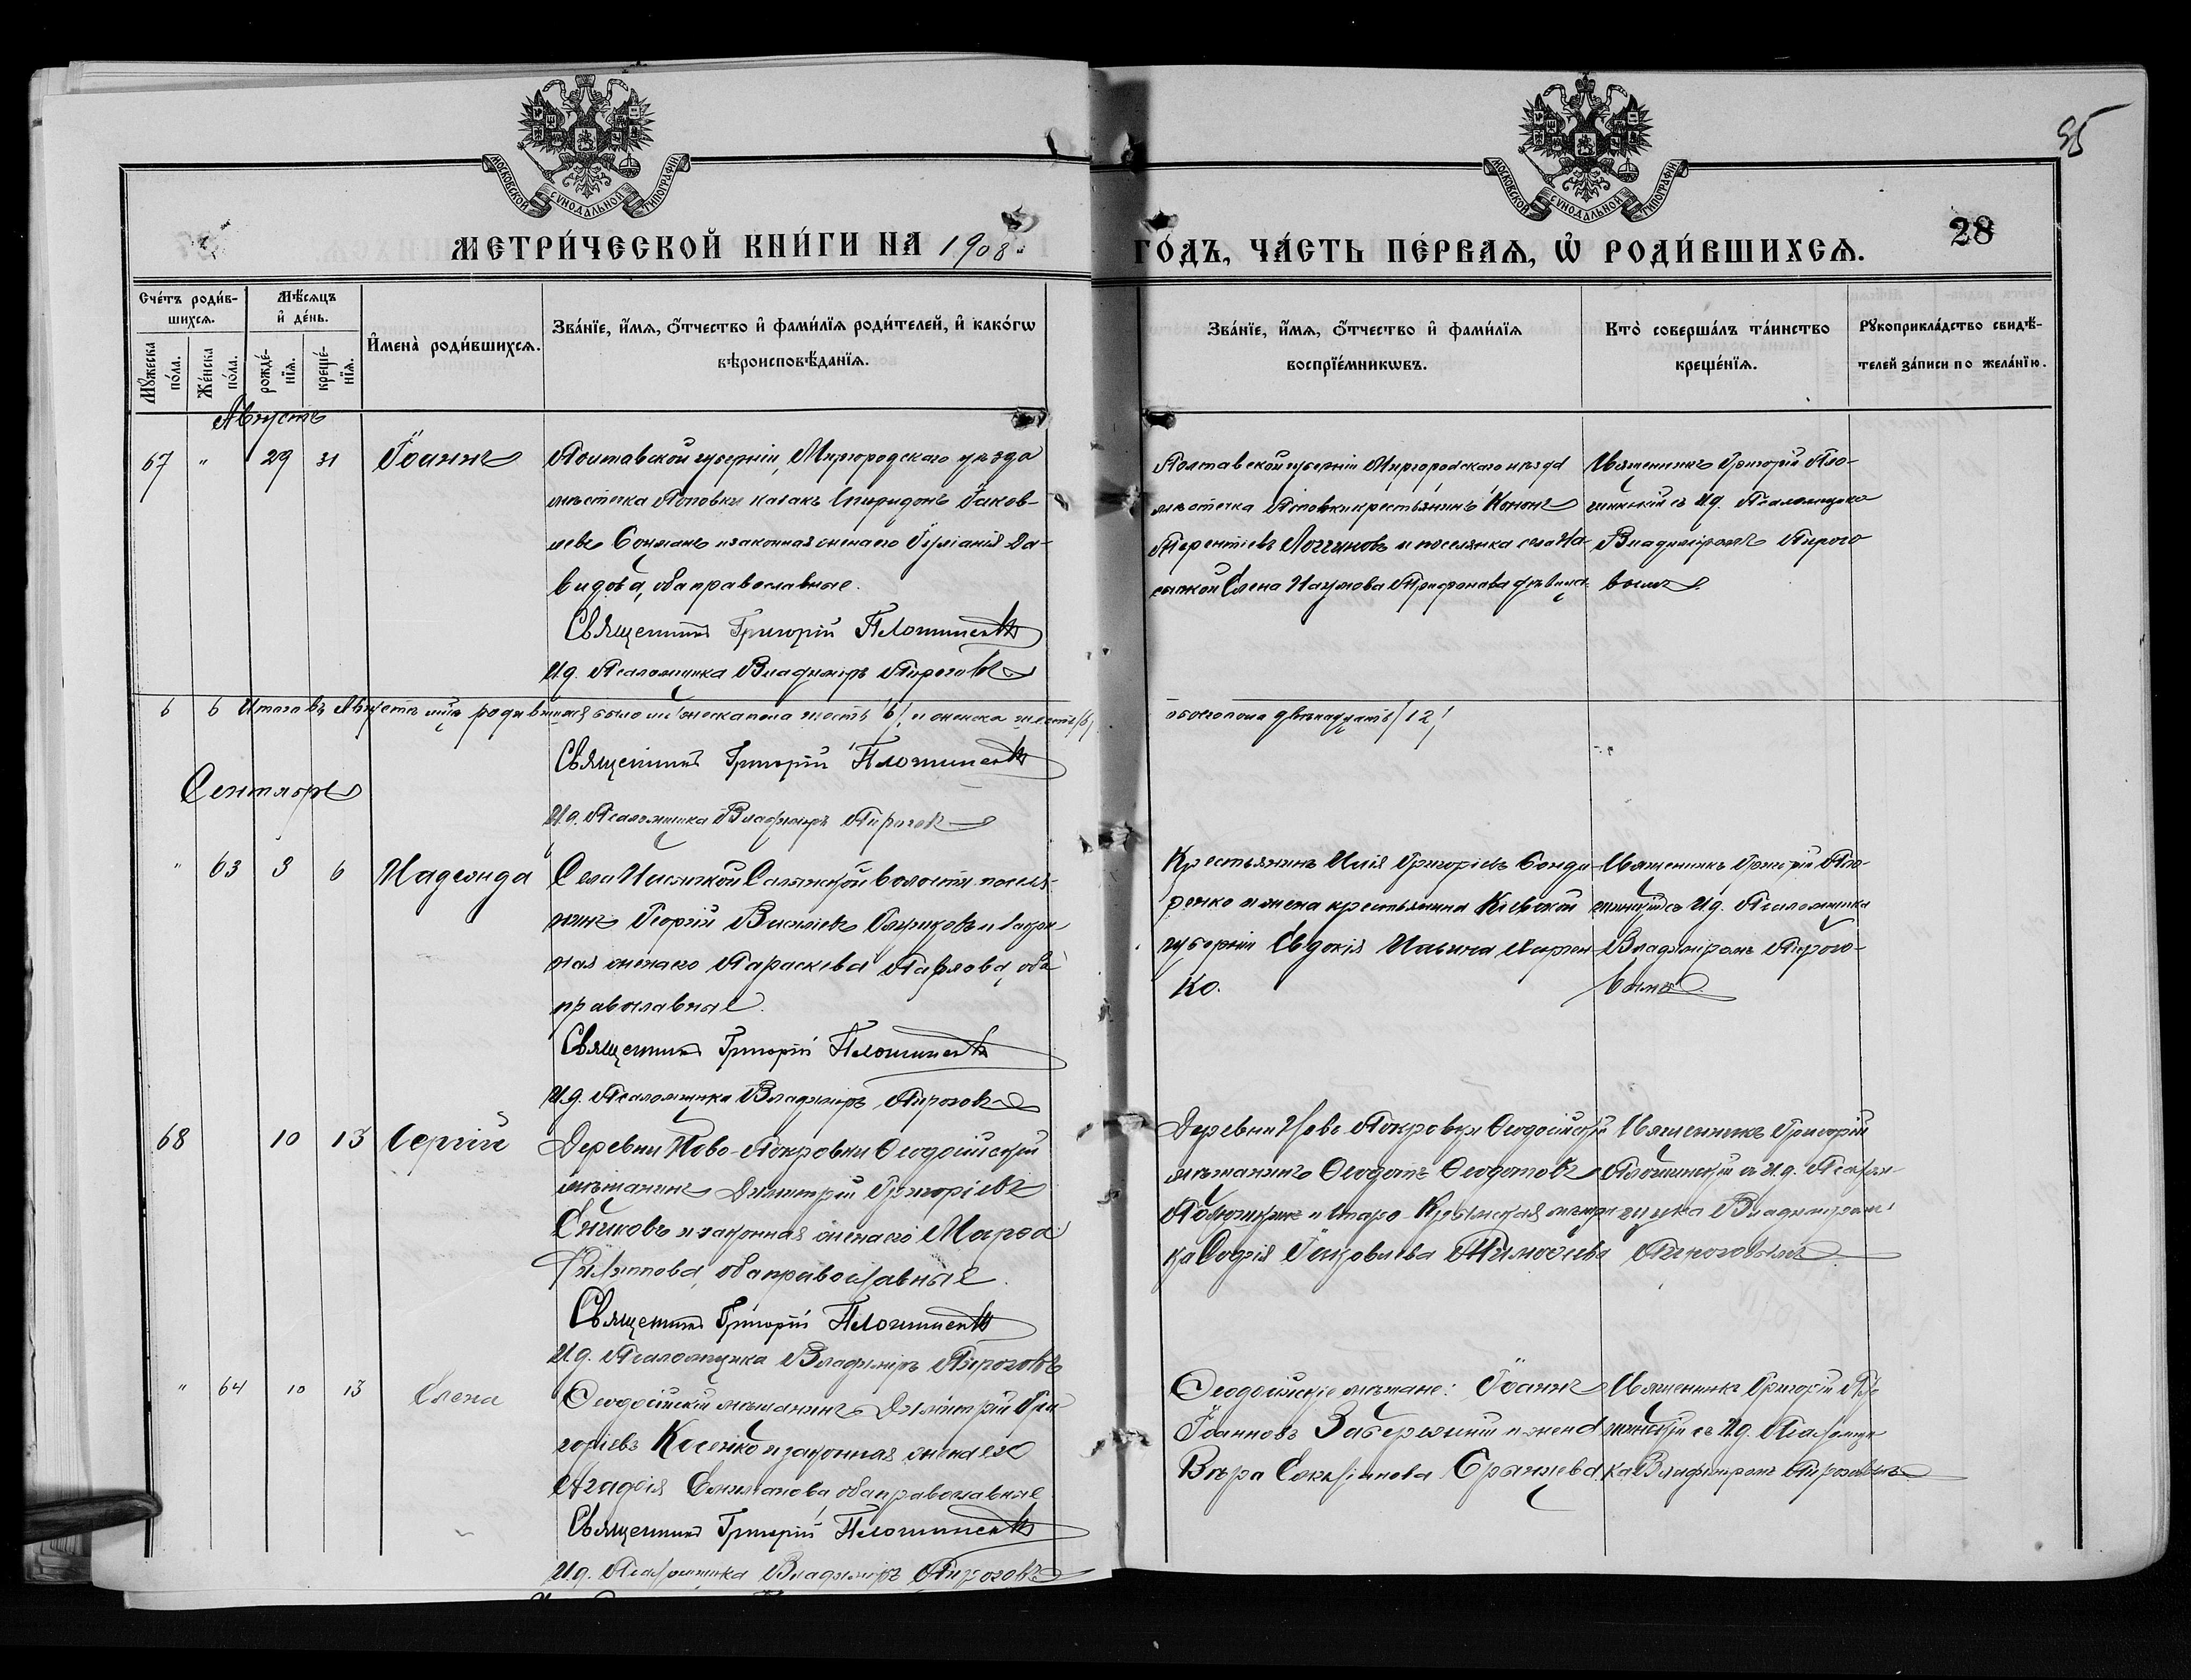 МОСКОВСКОЙ СѴНОДАЛЬНОЙ ТИПОГРАФІИ
МОСКОВСКОЙ СѴНОДАЛЬНОЙ ТИПОГРАФІИ
35
28
МЕТРИ́ЧЕСКОЙ КНИ́ГИ НА 1908
ГО́ДЪ, ЧА́СТЬ ПЕ́РВАѦ, Ѡ РОДИ́ВШИХСѦ.
Сче́тъ роди́в-
шихсѧ.
Мꙋ́жеска по́ла.
Же́нска по́ла.
Мѣ́сѧцъ
и҆ де́нь.
рожде́-
нїѧ.
креще́-
нїѧ.
И҆мена̀ роди́вшихсѧ.
Зва́нїе, и҆́мѧ, ѻ҆́тчество и҆ фами́лїѧ роди́телей, и҆ како́гѡ
вѣроисповѣ́данїѧ.
Зва́нїе, и҆́мѧ, ѻ҆́тчество и҆ фами́лїѧ
воспрїе́мникѡвъ.
Кто̀ соверша́лъ та́инство
креще́нїѧ.
Рꙋкоприкла́дство свидѣ́-
телей за́писи по жела́нїю.
Августъ
67 " 29 31 Іоаннъ
Полтавской губерніи, Миргородскаго уѣзда
мѣстечка Поповки казакъ Спиридонъ Іаков-
левъ и законная жена его Іуліанія Да-
видова, оба православные.
Священникъ Григорій Плошинскій
И.д. Псаломщика Владиміръ Пироговъ
Полтавской губерніи Миргородскаго уѣзда
мѣстечка Поповки крестьянинъ Кононъ
Терентіевъ и поселянка села На-
сыпкой Елена Наумова Трифонова дѣвица
Священникъ Григорій Пло-
шинскій съ И.д. Псаломщика
Владиміромъ Пирого
вымъ
6 6 Итого въ Августѣ м-цѣ родившихся было мужеска пола шесть /6/ и женска шесть /6/
обоего пола двѣнадцать /12/
Священникъ Григорій Плошинскій
И.д. Псаломщика Владиміръ Пироговъ
Сентябрь
" 63 3 6 Надежда
Села Насыпкой Салынской волости посел-
янинъ Георгій Василіевъ и закон
ная жена его Параскева Павлова, оба
православные.
Священникъ Григорій Плошинскій
И.д. Псаломщика Владиміръ Пироговъ
Крестьянинъ Илія Григоріевъ Бонда-
ренко и жена крестьянина Кіевской
губерніи Евдокія Ильина Марчен
ко.
Священникъ Григорій Пло-
шинскій съ И.д. Псаломщика
Владиміромъ Пирого-
вымъ
68 10 13 Сергій
Деревни Ново-Покровки Ѳеодосійскій
мѣщанинъ Димитрій Григоріевъ
и законная жена его Марѳа
Филиппова, оба православные.
Священникъ Григорій Плошинскій
И.д. Псаломщика Владиміръ Пироговъ
Деревни Ново-Покровки Ѳеодосійскій
мѣщанинъ Ѳеодотъ Ѳеодотовъ
и Старо-Крымская мѣщан
ка Софія Іаковлева Тимоѳеева
Священникъ Григорій
Плошинскій съ И.д. Псалом-
щика Владиміромъ
Пироговымъ
" 64 10 13 Елена
Ѳеодосійскій мѣщанинъ Димитрій Гри
горіевъ Косенко и законная жена его
Агафія оба православные.
Священникъ Григорій Плошинскій
И.д. Псаломщика Владиміръ Пироговъ
Ѳеодосійскіе мѣщане: Іоаннъ
Іоанновъ и жена
Вѣра
Священникъ Григорій Пло
шинскій съ И.д. Псаломщи
ка Владиміромъ Пироговымъ